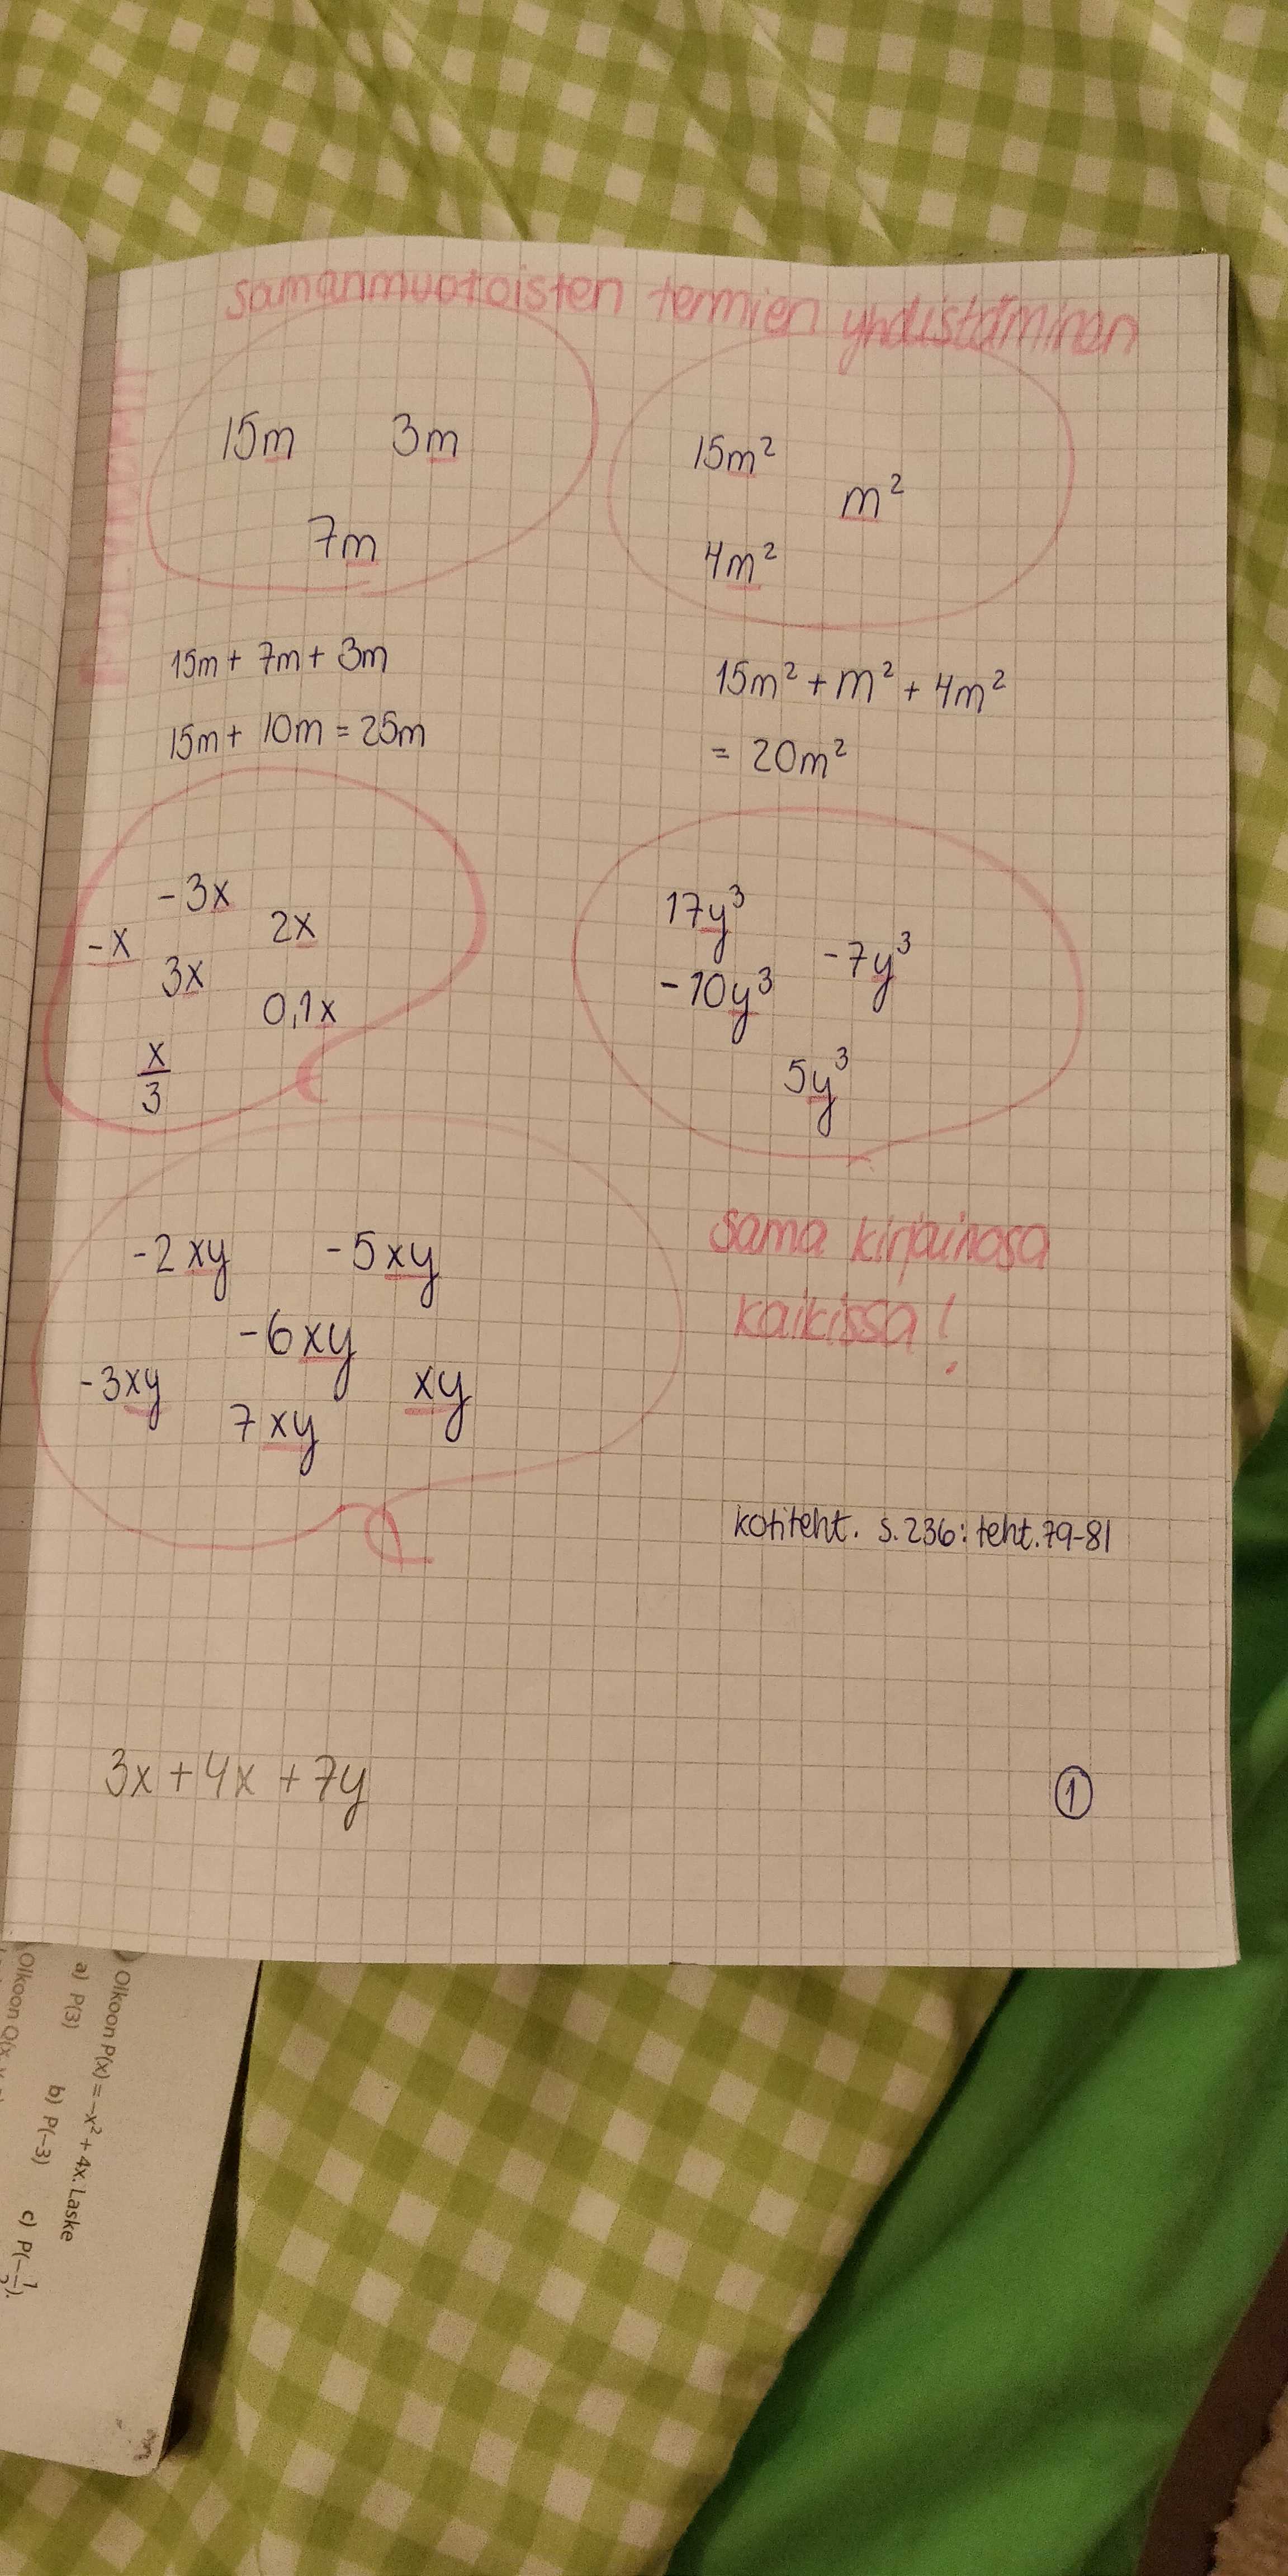 samanmuotoisten termien yhdistäminen
15m 3m
7m
15m²
m²
4m²
15m + 7m + 3m
15m + 10m = 25m
15m² + m² + 4m²
= 20m²
-3x
2x
-x
3x
0,1x
x/3
17y³
-7y³
-10y³
5y³
-2xy -5xy
-6xy
-3xy xy
7xy
sama kirjainosa
kaikissa!
kotiteht. s.236: teht.79-81
3x + 4x + 7y
1
Olkoon P(x) = -x² + 4x. Laske
a) P(3) b) P(-3) c) P(-1/2).
Olkoon